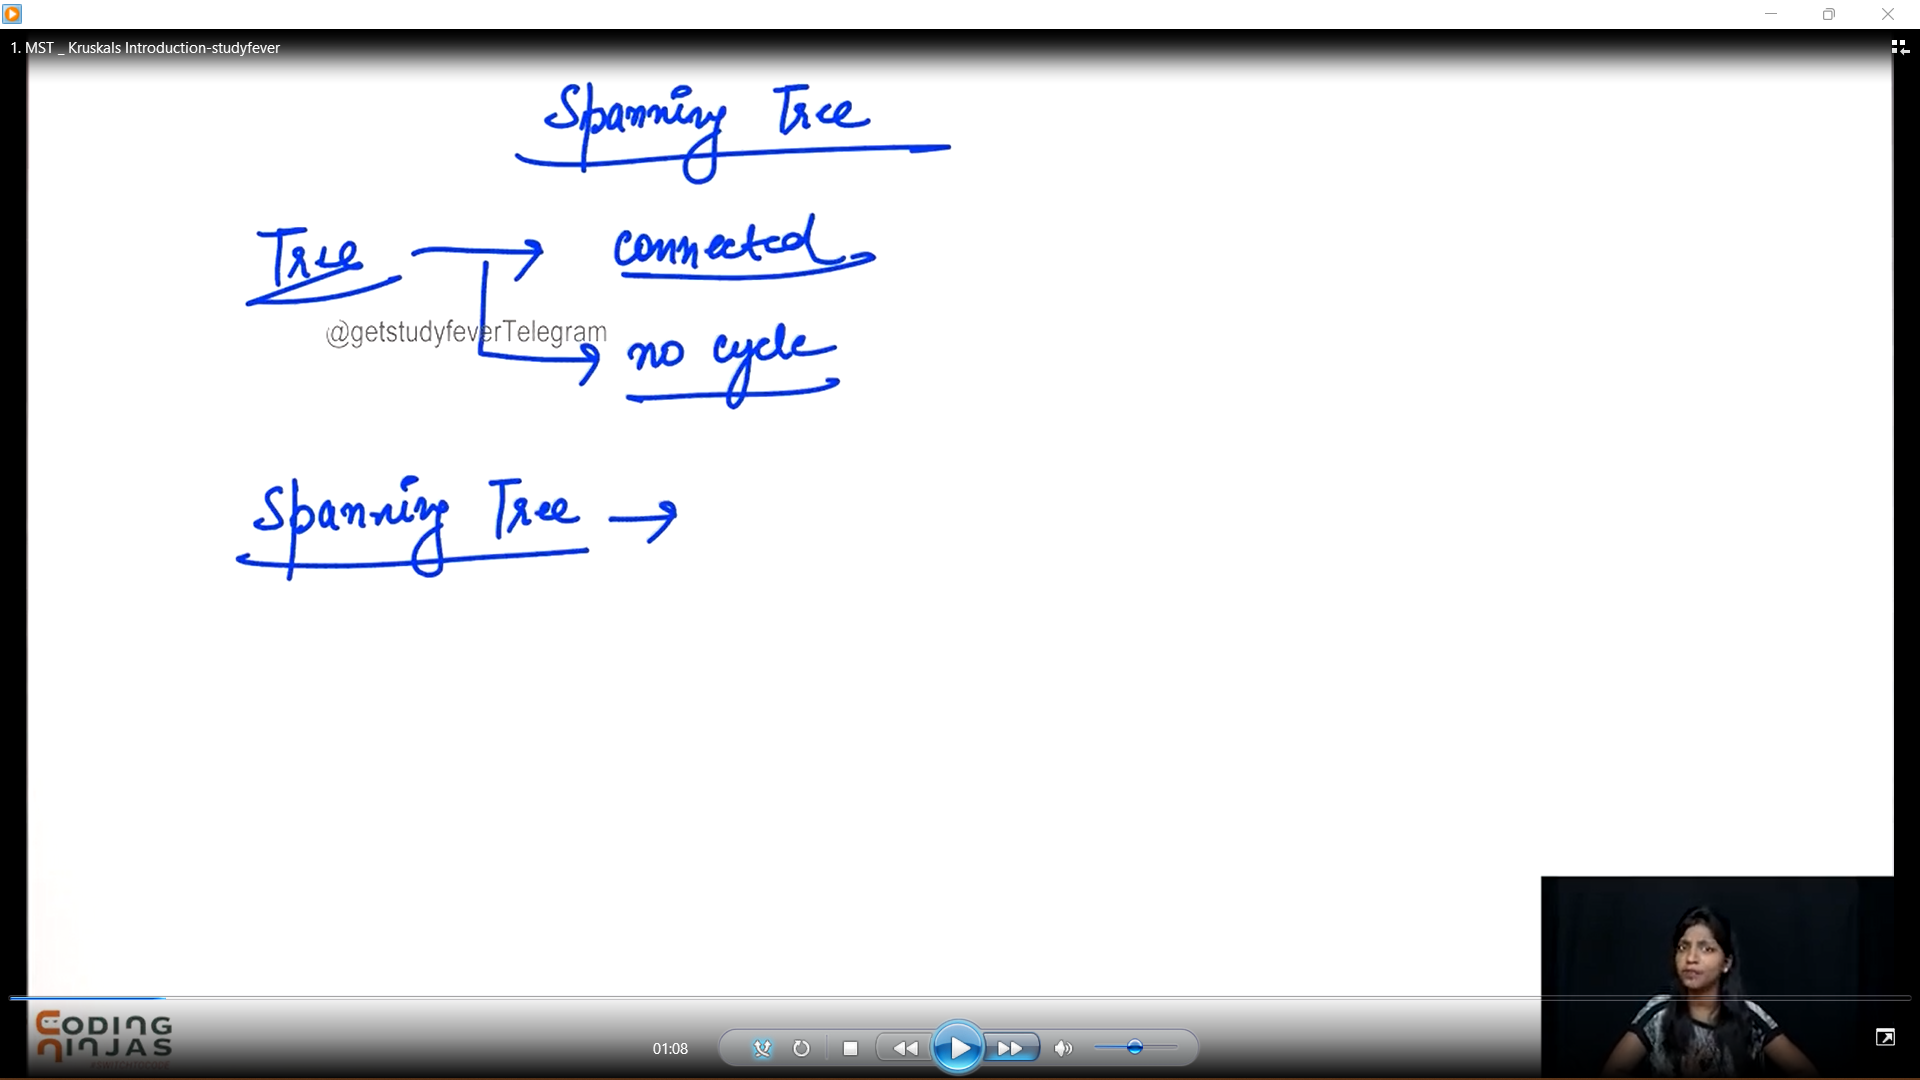 1. MST _ Kruskals Introduction-studyfever
Spanning Tree
Tree → connected
@getstudyfeverTelegram
no cycle
Spanning Tree →
CODING
NINJAS
01:08